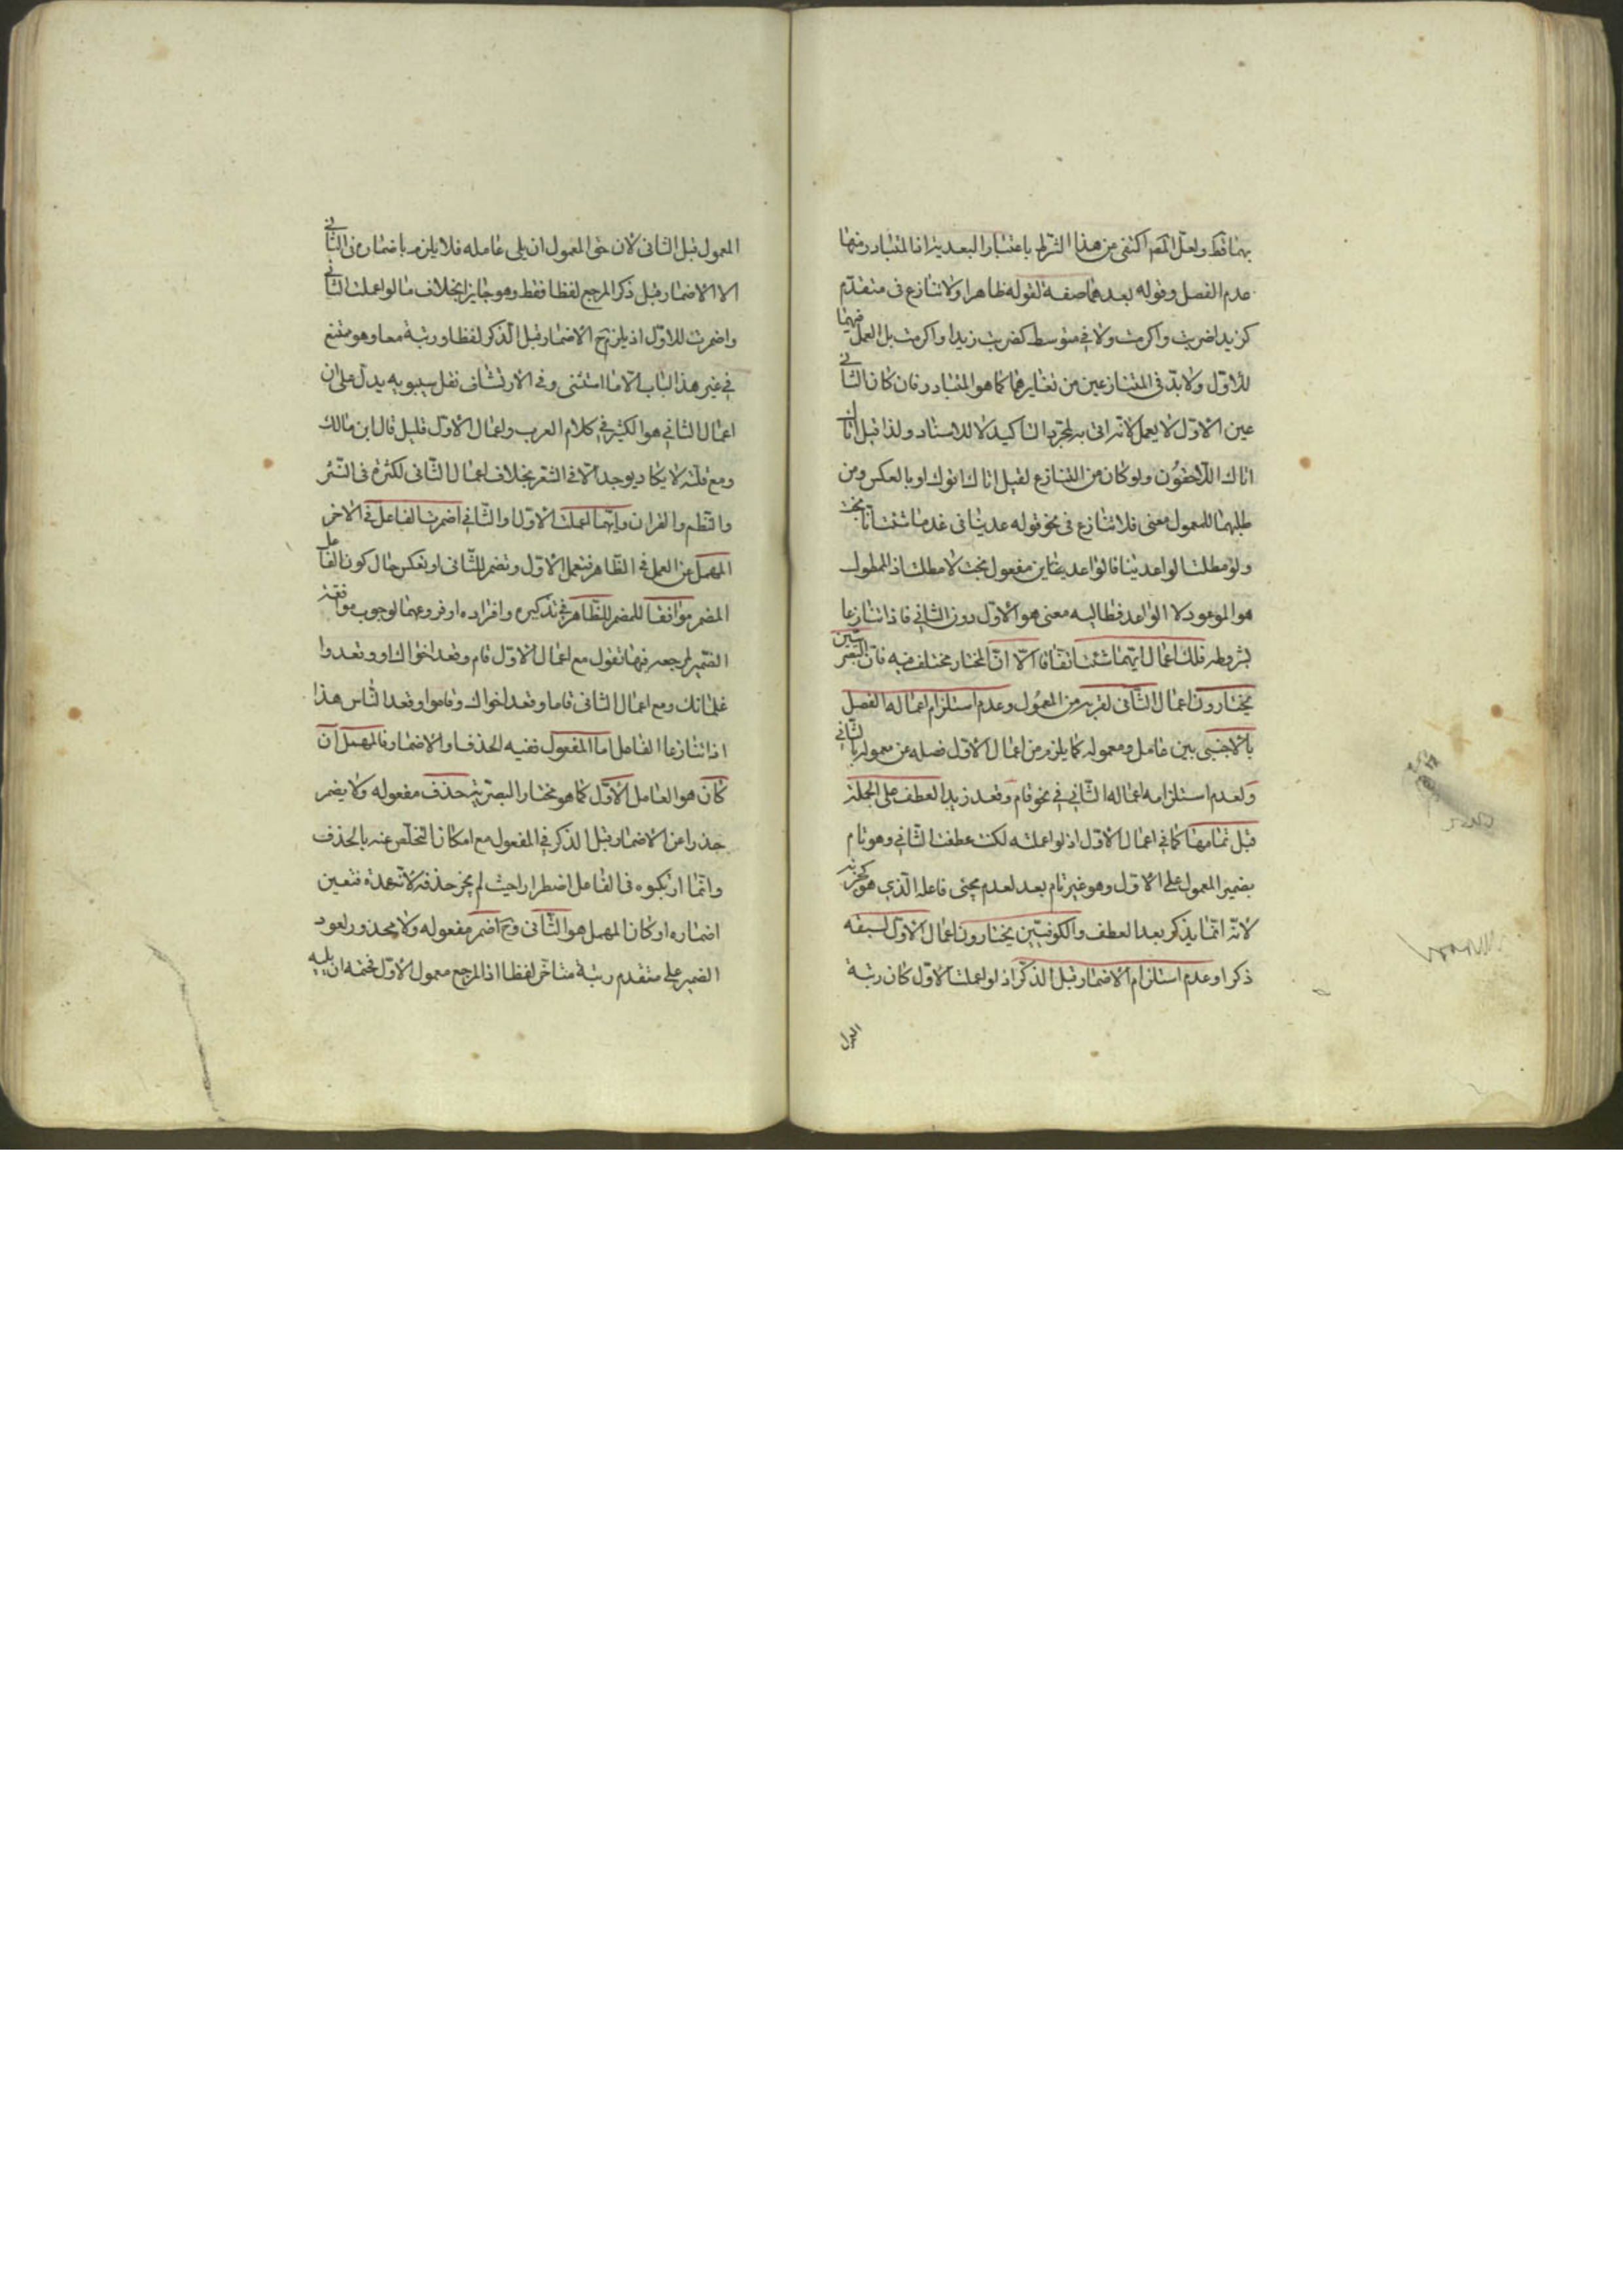 بهما قط ولعل المص اكتفى عن هذا الشرط باعتبار البعدية اذ المتبادر منها
عدم الفصل وقوله بعدهما صفة لقوله ظاهرا ولا تنازع فى متقدم
كزيدا ضربت واكرمت ولا في متوسط كضربت زيدا واكرمت بل العمل فيهما
للاول ولا بد فى المتنازعين من تغايرهما كما هو المتبادر فان كان الثانى
عين الاول لا يعمل لانه اتى به لمجرد التاكيد لا للاسناد ولذا قيل اتاك
اتاك اللاحقون ولو كان من التنازع لقيل اتاك اتوك او بالعكس ومن
طلبهما للمعمول معنى فلا تنازع فى نحو قوله عدينا فى غد ما شئت انا نحب
ولو مطلت الواعدينا فالواعدينا مفعول نحب لا مطلت اذ الممطول
هو الموعود لا الواعد فطالبه معنى هو الاول دون الثاني فاذا تنازعا
بشروطه فلك اعمال ايهما شئت اتفاقا الا ان المختار مختلف فيه فان البصريين
يختارون اعمال الثانى لقربه من المعمول وعدم استلزام اعماله الفصل
بالاجنبى بين عامل ومعموله كما يلزم من اعمال الاول فصله عن معموله بالثاني
ولعدم استلزامه اعماله الثاني في نحو قام وقعد زيد العطف على الجملة
قبل تمامها كما في اعمال الاول اذ لو اعملته لكنت عطفت الثاني وهو تام
بضمير المعمول على الاول وهو غير تام بعد لعدم مجئ فاعله الذي هو كجزئه
لانه انما يذكر بعد العطف والكوفيين يختارون اعمال الاول لسبقه
ذكرا وعدم استلزام الاضمار قبل الذكر اذ لو اعملت الاول كان رتبة
المعمول قبل الثانى لان حق المعمول ان يلى عامله فلا يلزم باضماره فى الثانى
الا الاضمار قبل ذكر المرجع لفظا فقط وهو جايز بخلاف ما لو اعملت الثاني
واضمرت للاول اذ يلزم ح الاضمار قبل الذكر لفظا ورتبة معا وهو ممتنع
في غير هذا الباب الا ما استثنى وفى الارتشاف نقل سيبويه يدل على ان
اعمال الثاني هو الكثير في كلام العرب واعمال الاول قليل قال ابن مالك
ومع قلته لا يكاد يوجد الا فى الشعر بخلاف اعمال الثانى لكثرة فى النثر
والنظم والقران وايهما اعملت الاول او الثاني اضمرت الفاعل فى الاخر
المهمل عن العمل فى الظاهر فتعمل الاول وتضمر للثانى او تعكس حال كون الفاعل
المضمر موافقا للمضمر للظاهر فى تذكيره وافراده او فروعهما لوجوب موافقة
الضمير لمرجعه فيها تقول مع اعمال الاول قام وقعدا اخواك او وقعدوا
غلمانك ومع اعمال الثانى قاما وقعد اخواك وقاموا وقعد الناس هذا
اذا تنازعا الفاعل اما المفعول ففيه الحذف او الاضمار فالمهمل ان
كان هو العامل الاول كما هو مختار البصريين حذف مفعوله ولا يضمر
حذرا عن الاضمار قبل الذكر في المفعول مع امكان التخلص عنه بالحذف
وانما ارتكبوه فى الفاعل اضطرارا حيث لم يجز حذفه لانه عمدة فتعين
اضماره او كان المهمل هو الثانى وح اضمر مفعوله ولا محذور لعود
الضمير على متقدم رتبة متاخر لفظا اذ المرجع معمول الاول فحقه ان يليه